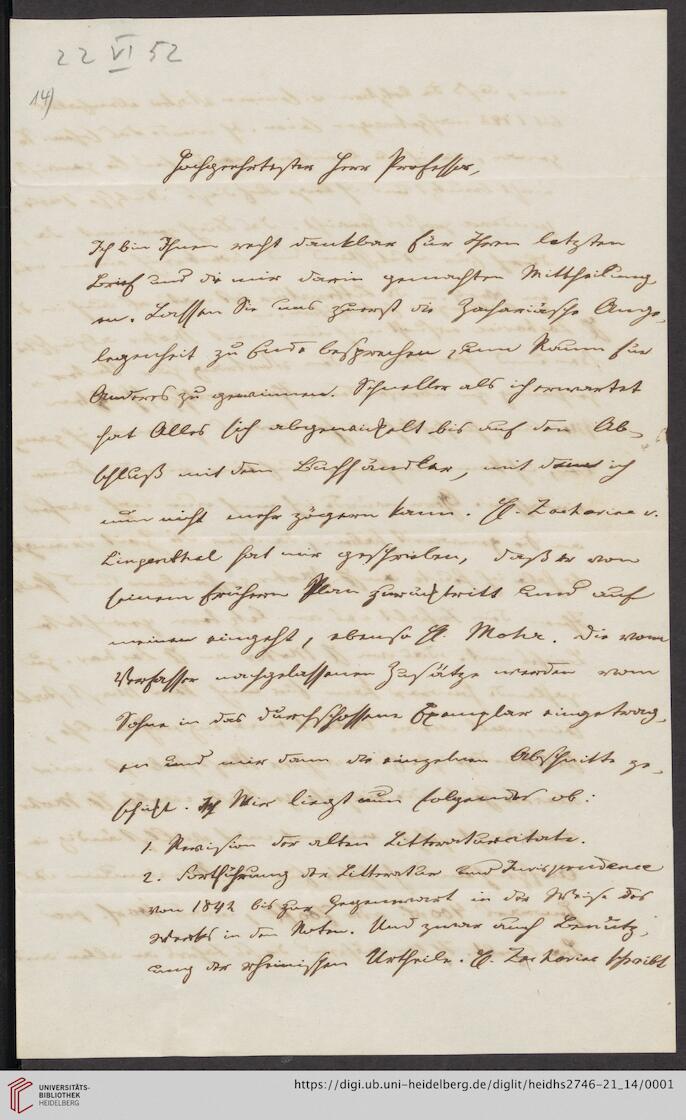 22 VI 52
14)
Hochgeehrtester Herr Professor,
Ich bin Ihnen recht dankbar für Ihren letzten
Brief und die mir darin gemachten Mittheilung,
en. Lassen Sie uns zuerst die Zachariäsche Ange,
legenheit zu Ende besprechen, um Raum für
Anderes zu gewinnen. Schneller als ich erwartet
hat Alles sich abgewickelt bis auf den Ab,
schluß mit dem Buchhändler, mit dem ich
nun nicht mehr zögern kann. H. Zachariae v.
Lingenthal hat mir geschrieben, daß er von
seinem frühern Plan zurücktritt und auf
meinen eingeht, ebenso H. Mohr. Die vom
Verfasser nachgelassenen Zusätze werden vom
Sohne in das durchschossene Exemplar eingetrag,
en und mir dann die einzelnen Abschnitte ge,
schickt. Mir liegt nun folgendes ob:
1. Revision der alten Litteraturcitate.
2. Fortführung der Litteratur und Jurisprudence
von 1842 bis zur Gegenwart in der Weise des
Werks in den Noten. Und zwar auch Benutz,
ung der rheinischen Urtheile. H. Zachariae schreibt
UNIVERSITÄTS-
BIBLIOTHEK
HEIDELBERG
https://digi.ub.uni-heidelberg.de/diglit/heidhs2746-21_14/0001